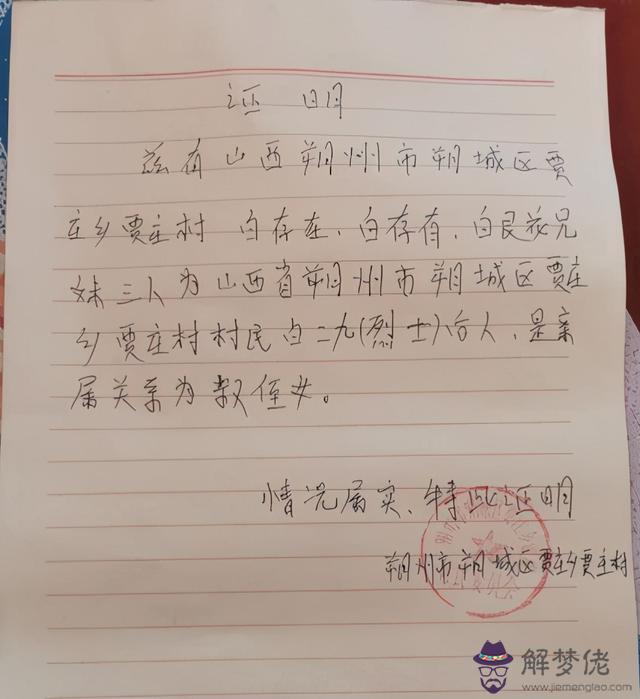 证明
兹有山西朔州市朔城区贾
庄乡贾庄村 白存在、白存有、白良花兄
妹三人为山西省朔州市朔城区贾庄
乡贾庄村村民白二九(烈士)后人,是亲
属关系为叔侄女。
情况属实、特此证明
朔州市朔城区贾庄乡贾庄村
解梦佬
www.jiemenglao.com